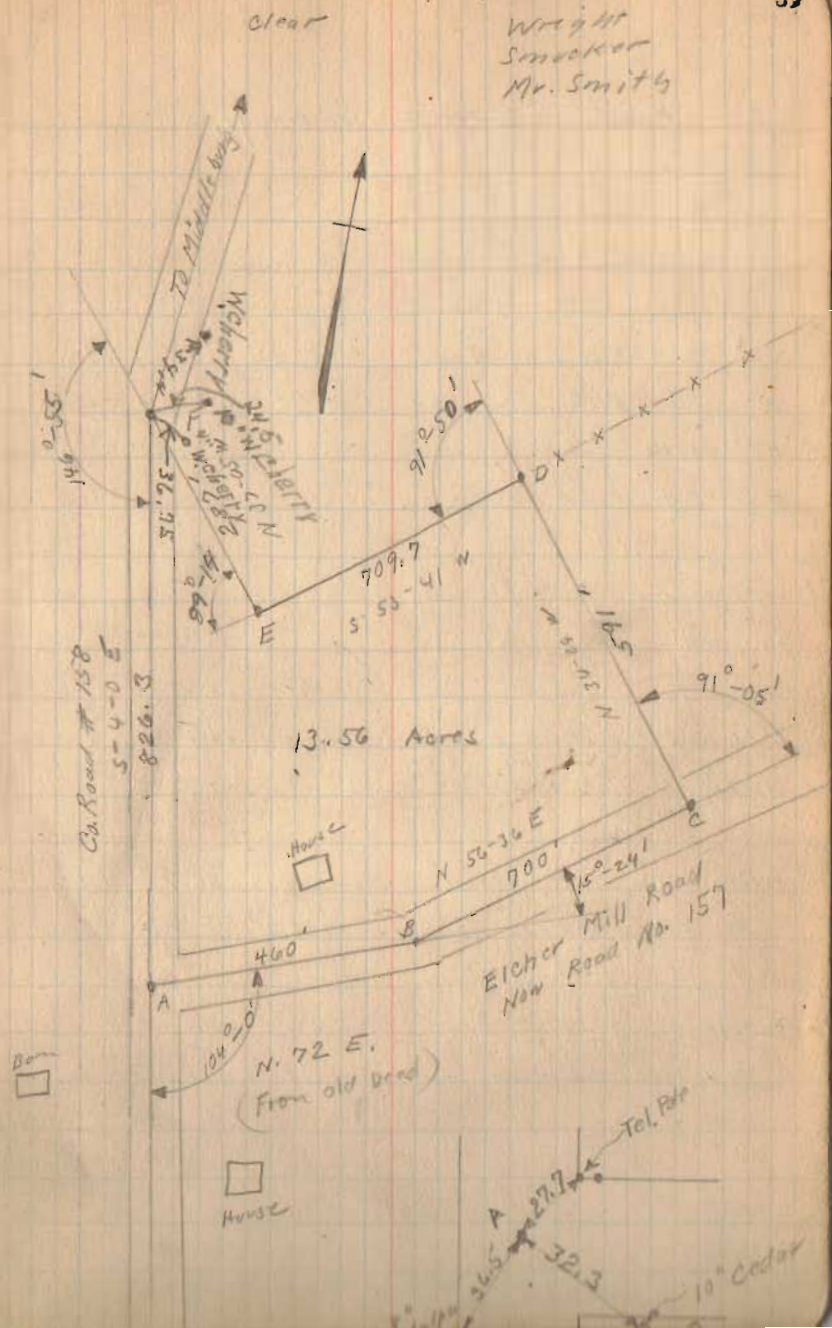 Clear
Wright
Smucker
Mr. Smith
To Middleburg
34.4
W.cherry
24.5
"W Cherry
W.cherry
36.95
282'
149°-55'
89°-19'
E
709.7
S 53-41 W
91°-50'
D
591
N 34-29 W
91°-05'
C
Co. Road # 158
S-4-0 E
826.3
13.56 Acres
House
N 56-36 E
700'
15°-24'
B
460'
A
Elcher Mill Road
Now Road No. 157
104°-0'
N. 72 E.
(From old Deed)
Barn
House
Tel. Pole
27.7
A
36.5
32.3
10" Cedar